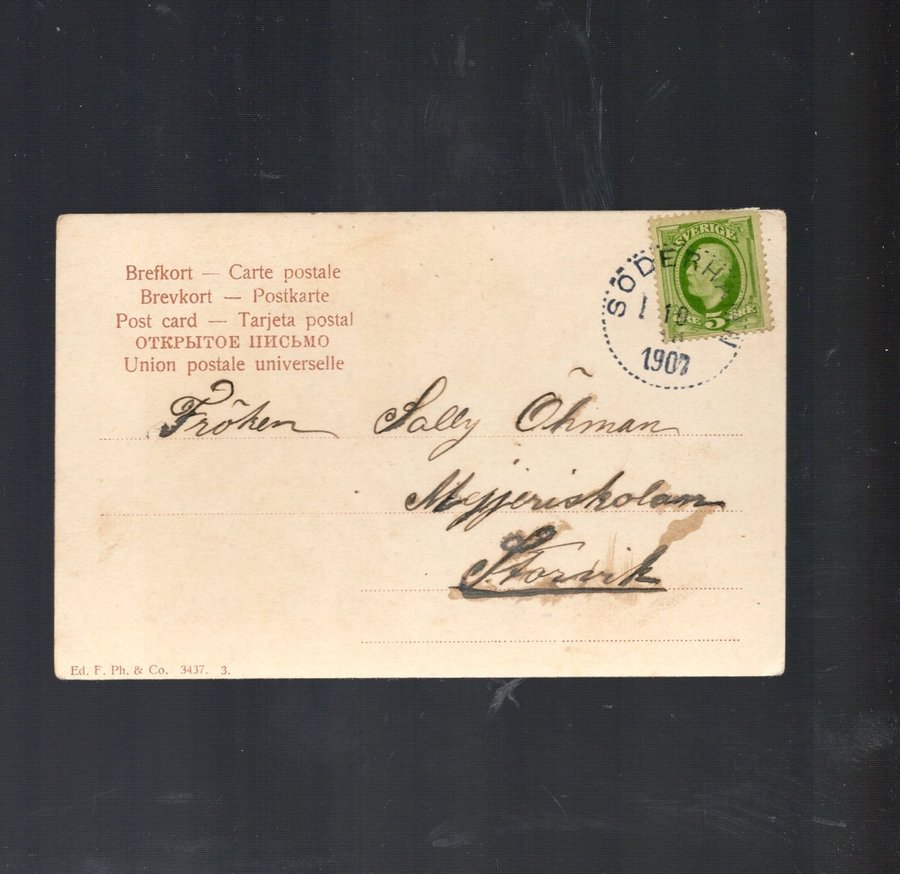 Brefkort — Carte postale
Brevkort — Postkarte
Post card — Tarjeta postal
ОТКРЫТОЕ ПИСЬМО
Union postale universelle
SVERIGE
5 ÖRE
SÖDERHAMN
1 10
1907
Fröken Sally Öhman
Mejjeriskolan
Storvik
Ed. F. Ph. & Co. 3437. 3.